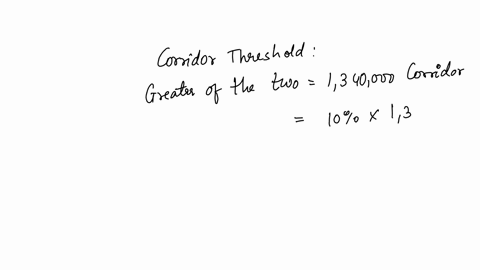 Corridor Threshold :
Greater of the two = 1,340,000 Corridor
= 10% x 1,3